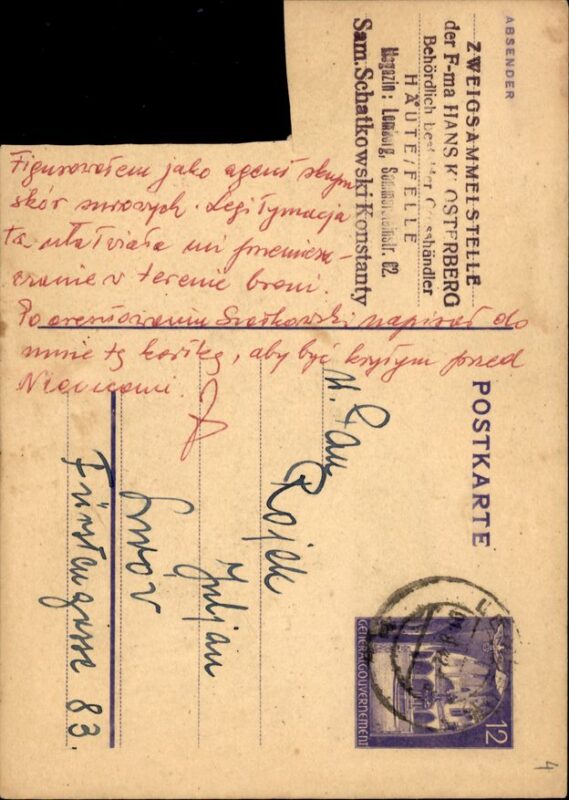 ABSENDER
ZWEIGSAMMELSTELLE
der F-ma HANS K. OSTERBERG
Behördlich Grosshändler
HÄUTE/FELLE
Magazin: Lemberg, 62.
Sam. Schatkowski Konstanty
Figurowałem jako agent
skór surowych. Legitymacja
ta ułatwiała mi przenie-
w terenie broni.
Po aresztowaniu Szatkowski napisał do
mnie tę kartkę, aby być krytym przed
Niemcami.
POSTKARTE
W. Pan
Rojek
Juljan
Lwów
Fürstengasse 83.
GENERALGOUVERNEMENT
12
4